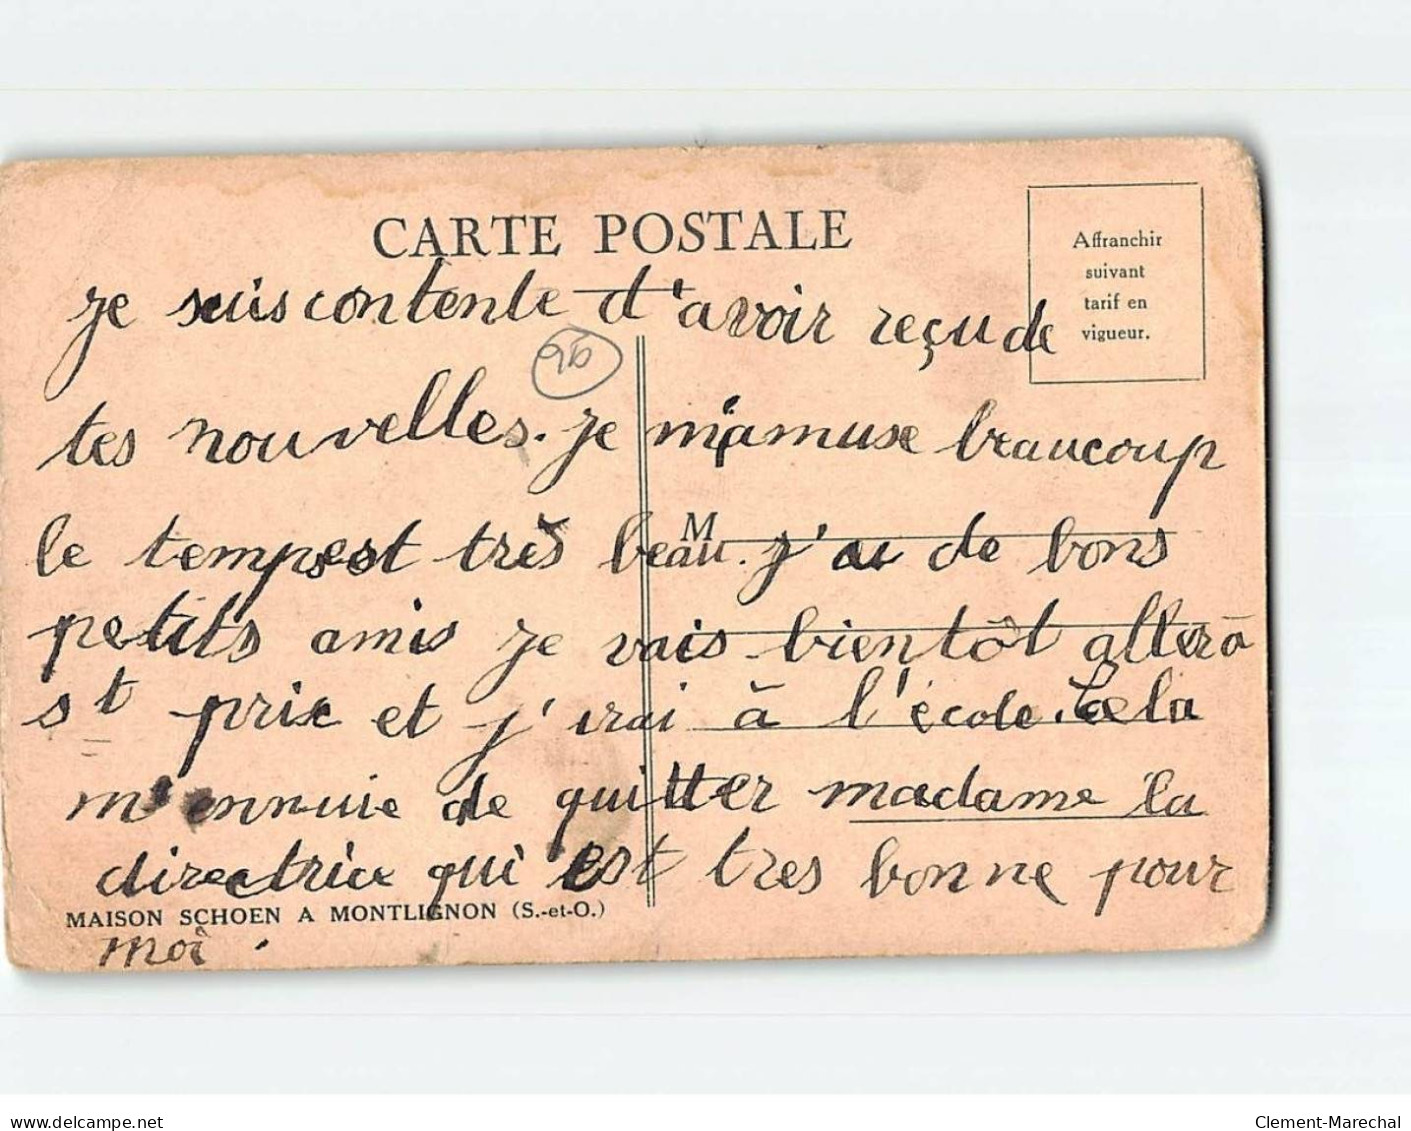 CARTE POSTALE
Affranchir
suivant
tarif en
vigueur.
je suis contente d'avoir reçu de
tes nouvelles. je m'amuse beaucoup
M
le temps est très beau. j'ai de bons
petits amis je vais bientôt aller à
st prix et j'irai à l'école. Cela
m'ennuie de quitter madame la
directrice qui est tres bonne pour
MAISON SCHOEN A MONTLIGNON (S.-et-O.)
moi.
delcampe.net
Clement-Marechal